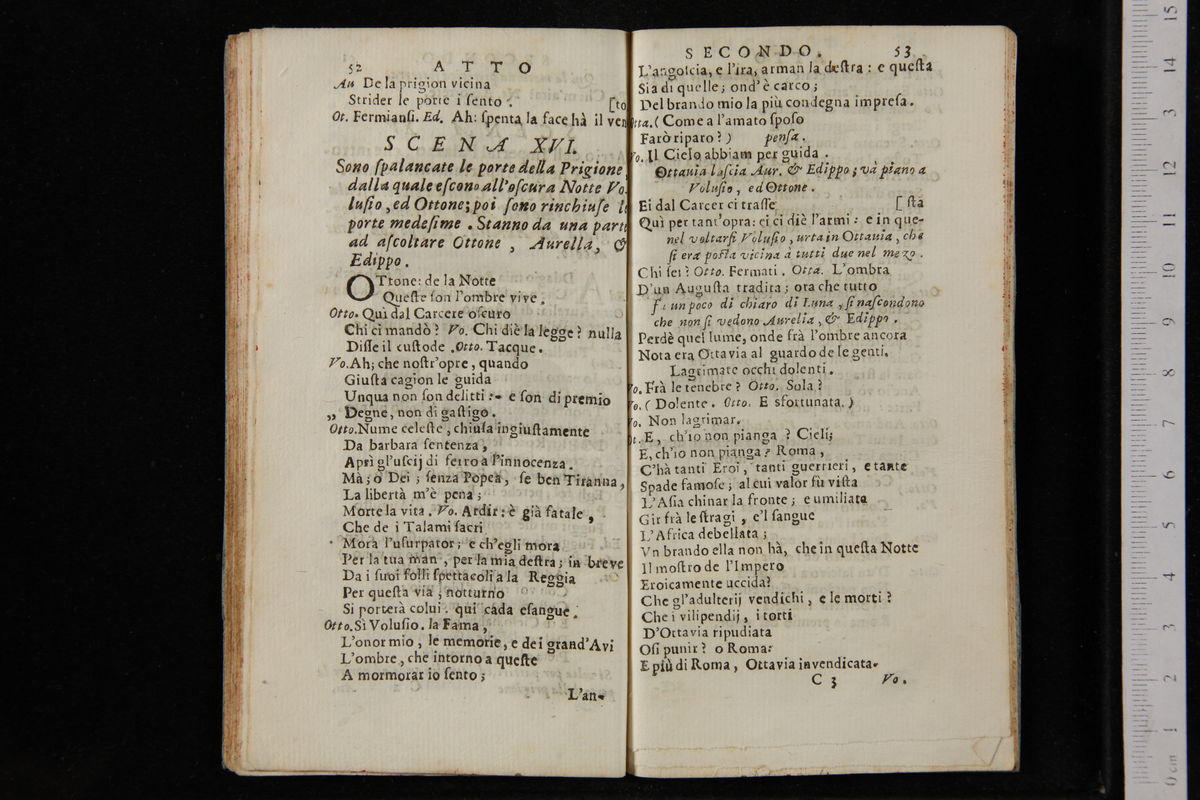 52 ATTO
Au De la prigion vicina
Strider le porte i sento . [to
Ot. Fermiansi. Ed. Ah: spenta la face hà il ven
SCENA XVI.
Sono spalancate le porte della Prigione
dalla quale escono all'oscura Notte Vo
lusio, ed Ottone; poi sono rinchiuse le
porte medesime . Stanno da una parte
ad ascoltare Ottone , Aurelia, &
Edippo.
OTtone: de la Notte
Queste son l'ombre vive .
Otto. Quì dal Carcere oscuro
Chi ci mandò ? Vo. Chi diè la legge ? nulla
Disse il custode .Otto. Tacque.
Vo. Ah; che nostr'opre, quando
Giusta cagion le guida
Unqua non son delitti : e son di premio
„ Degne, non di gastigo.
Otto. Nume celeste , chiusa ingiustamente
Da barbara sentenza ,
Aprì gl'uscij di ferro a l'innocenza .
Mà; ò Dei ; senza Popea, se ben Tiranna,
La libertà m'è pena ;
Morte la vita . Vo. Ardir : è già fatale ,
Che de i Talami sacri
Mora l'usurpator ; e ch'egli mora
Per la tua man , per la mia destra ; in breve
Da i suoi folli spettacoli a la Reggia
Per questa via , notturno
Si porterà colui . qui cada esangue .
Otto. Sì Volusio . la Fama ,
L'onor mio , le memorie, e de i grand'Avi
L'ombre , che intorno a queste
A mormorar io sento ;
L'an-
SECONDO. 53
L'angoscia, e l'ira, arman la destra : e questa
Sia di quelle ; ond'è carco ;
Del brando mio la più condegna impresa.
Otta. ( Come a l'amato sposo
Farò riparo ? ) pensa .
Vo. Il Cielo abbiam per guida .
Ottauia lascia Aur. & Edippo ; và piano a
Volusio , ed Ottone .
Ei dal Carcer ci trasse [ sta
Quì per tant'opra: ei ci diè l'armi : e in que-
nel voltarsi Volusio , urta in Ottauia , che
si era posta vicina à tutti due nel mezo .
Chi sei ? Otto. Fermati . Otta. L'ombra
D'un Augusta tradita ; ora che tutto
fà un poco di chiaro di Luna , si nascondono
che non si vedono Aurelia , & Edippo .
Perdè quel lume, onde frà l'ombre ancora
Nota era Ottavia al guardo de le genti.
Lagrimate occhi dolenti .
Vo. Frà le tenebre ? Otto. Sola ?
Vo. ( Dolente . Otto. E sfortunata. )
Vo. Non lagrimar.
Ot. E, ch'io non pianga ? Cieli;
E, ch'io non pianga ? Roma ,
C'hà tanti Eroi , tanti guerrieri , e tante
Spade famose ; al cui valor fù vista
L'Asia chinar la fronte ; e umiliata
Gir frà le stragi , e'l sangue
L'Africa debellata ;
Vn brando ella non hà, che in questa Notte
Il mostro de l'Impero
Eroicamente uccida?
Che gl'adulterij vendichi , e le morti ?
Che i vilipendij , i torti
D'Ottavia ripudiata
Osi punir ? o Roma:
E più di Roma, Ottavia invendicata.
C 3 Vo.